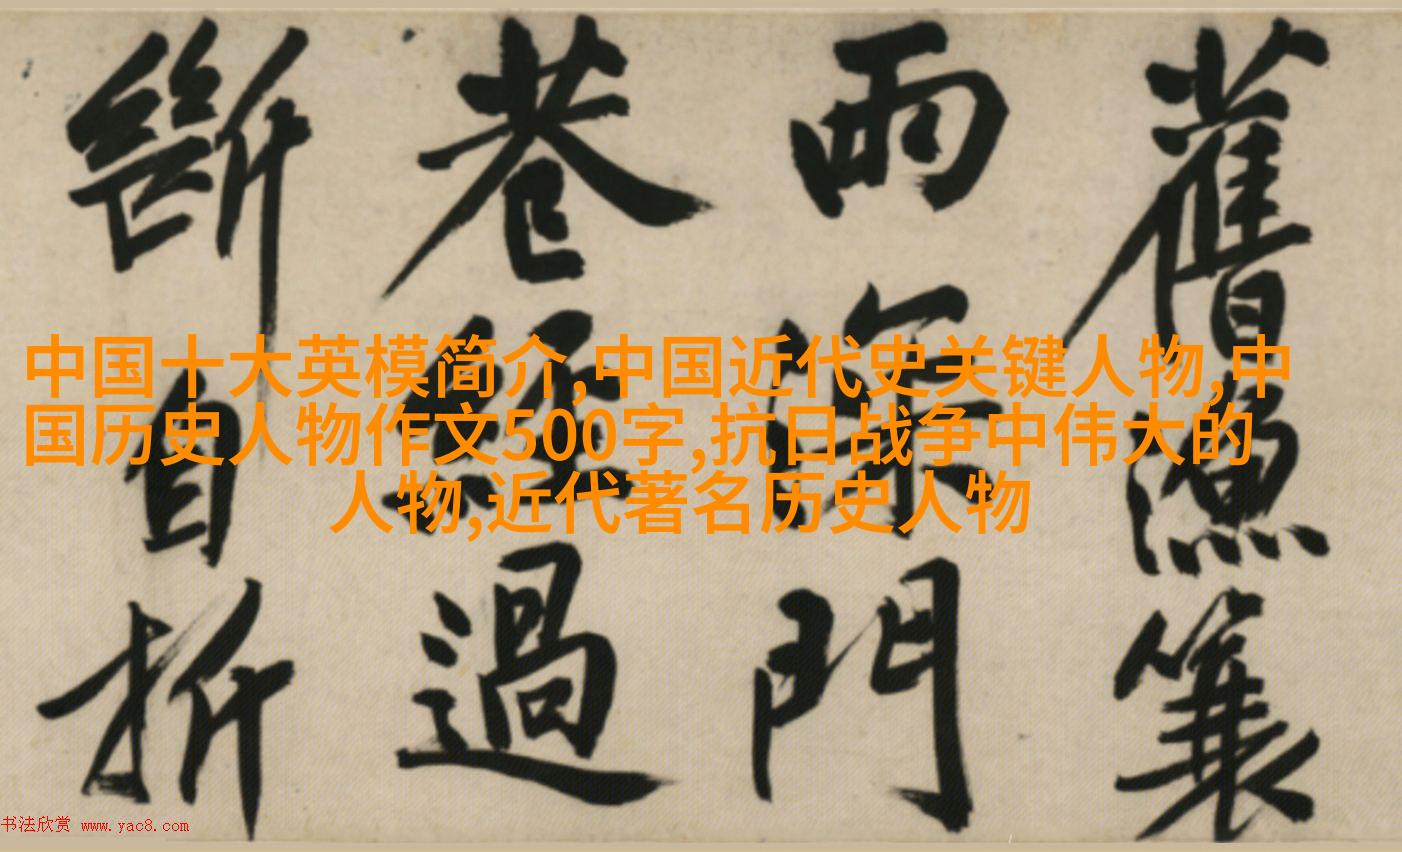 舊漁簑
雨深門
巷經過
斷自折
中国十大英模简介,中国近代史关键人物,中
国历史人物作文500字,抗日战争中伟大的
人物,近代著名历史人物
书法欣赏 www.yac8.com